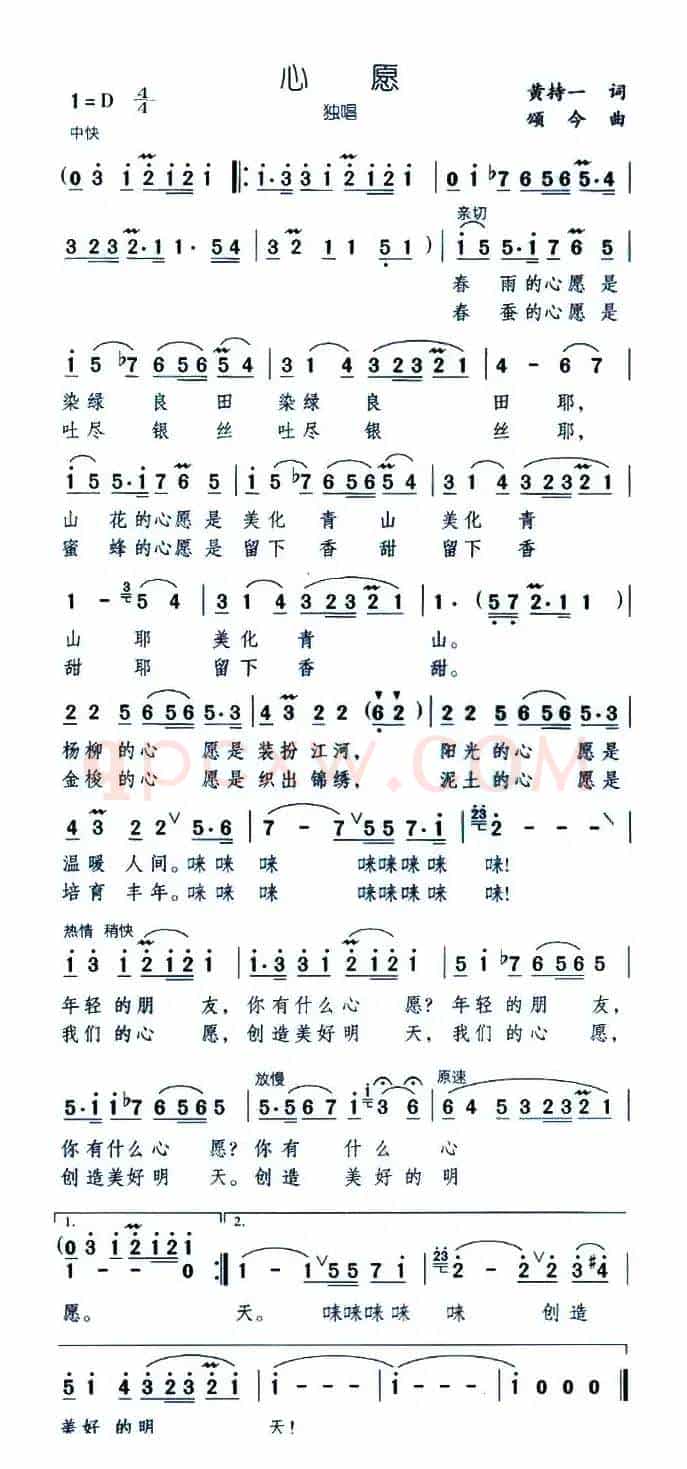 心 愿
1=D 4/4
独唱
黄持一 词
颂 今 曲
中快
(0 3 1 2 1 2 1 ‖: 1·3 3 1 2 1 2 1 | 0 1 ♭7 6 5 6 5·4 |
亲切
3 2 3 2·1 1·5 4 | 3 2 1 1 5 1 ) | 1 5 5·1 7 6 5 |
春 雨的心愿是
春 蚕的心愿是
1 5 ♭7 6 5 6 5 4 | 3 1 4 3 2 3 2 1 | 4 - 6 7 |
染绿 良 田 染绿 良 田 耶,
吐尽 银 丝 吐尽 银 丝 耶,
1 5 5·1 7 6 5 | 1 5 ♭7 6 5 6 5 4 | 3 1 4 3 2 3 2 1 |
山 花的心愿是 美化 青 山 美化 青
蜜 蜂的心愿是 留下 香 甜 留下 香
1 - 3 5 4 | 3 1 4 3 2 3 2 1 | 1· (5 7 2·1 1 ) |
山 耶 美化 青 山。
甜 耶 留下 香 甜。
2 2 5 6 5 6 5·3 | 4 3 2 2 (6 2) | 2 2 5 6 5 6 5·3 |
杨柳 的心 愿是 装扮 江河, 阳光 的心 愿是
金梭 的心 愿是 织出 锦绣, 泥土 的心 愿是
4 3 2 2 ∨ 5·6 | 7 - 7 ∨ 5 5 7·1 | 23 2 - - - \ |
温暖 人间。咪咪 咪 咪咪咪咪 咪!
培育 丰年。咪咪 咪 咪咪咪咪 咪!
热情 稍快
1 3 1 2 1 2 1 | 1·3 3 1 2 1 2 1 | 5 1 ♭7 6 5 6 5 |
年轻 的朋 友, 你有什么心 愿? 年轻 的朋 友,
我们 的心 愿, 创造美好明 天, 我们 的心 愿,
放慢 原速
5·1 1 ♭7 6 5 6 5 | 5·5 6 7 1 1 3 6 | 6 4 5 3 2 3 2 1 |
你有什么 心 愿? 你有 什么 心
创造美好 明 天。创造 美好 的 明
1. 2.
(0 3 1 2 1 2 1
1 - - 0 :‖ 1 - 1 ∨ 5 5 7 1 | 23 2 - 2 ∨ 2 3 #4 |
愿。 天。 咪咪咪 咪 咪 创造
5 1 4 3 2 3 2 1 | 1 - - - | 1 - 1 - | 1 0 0 0 ‖
美好 的明 天!
qpcxw.COM